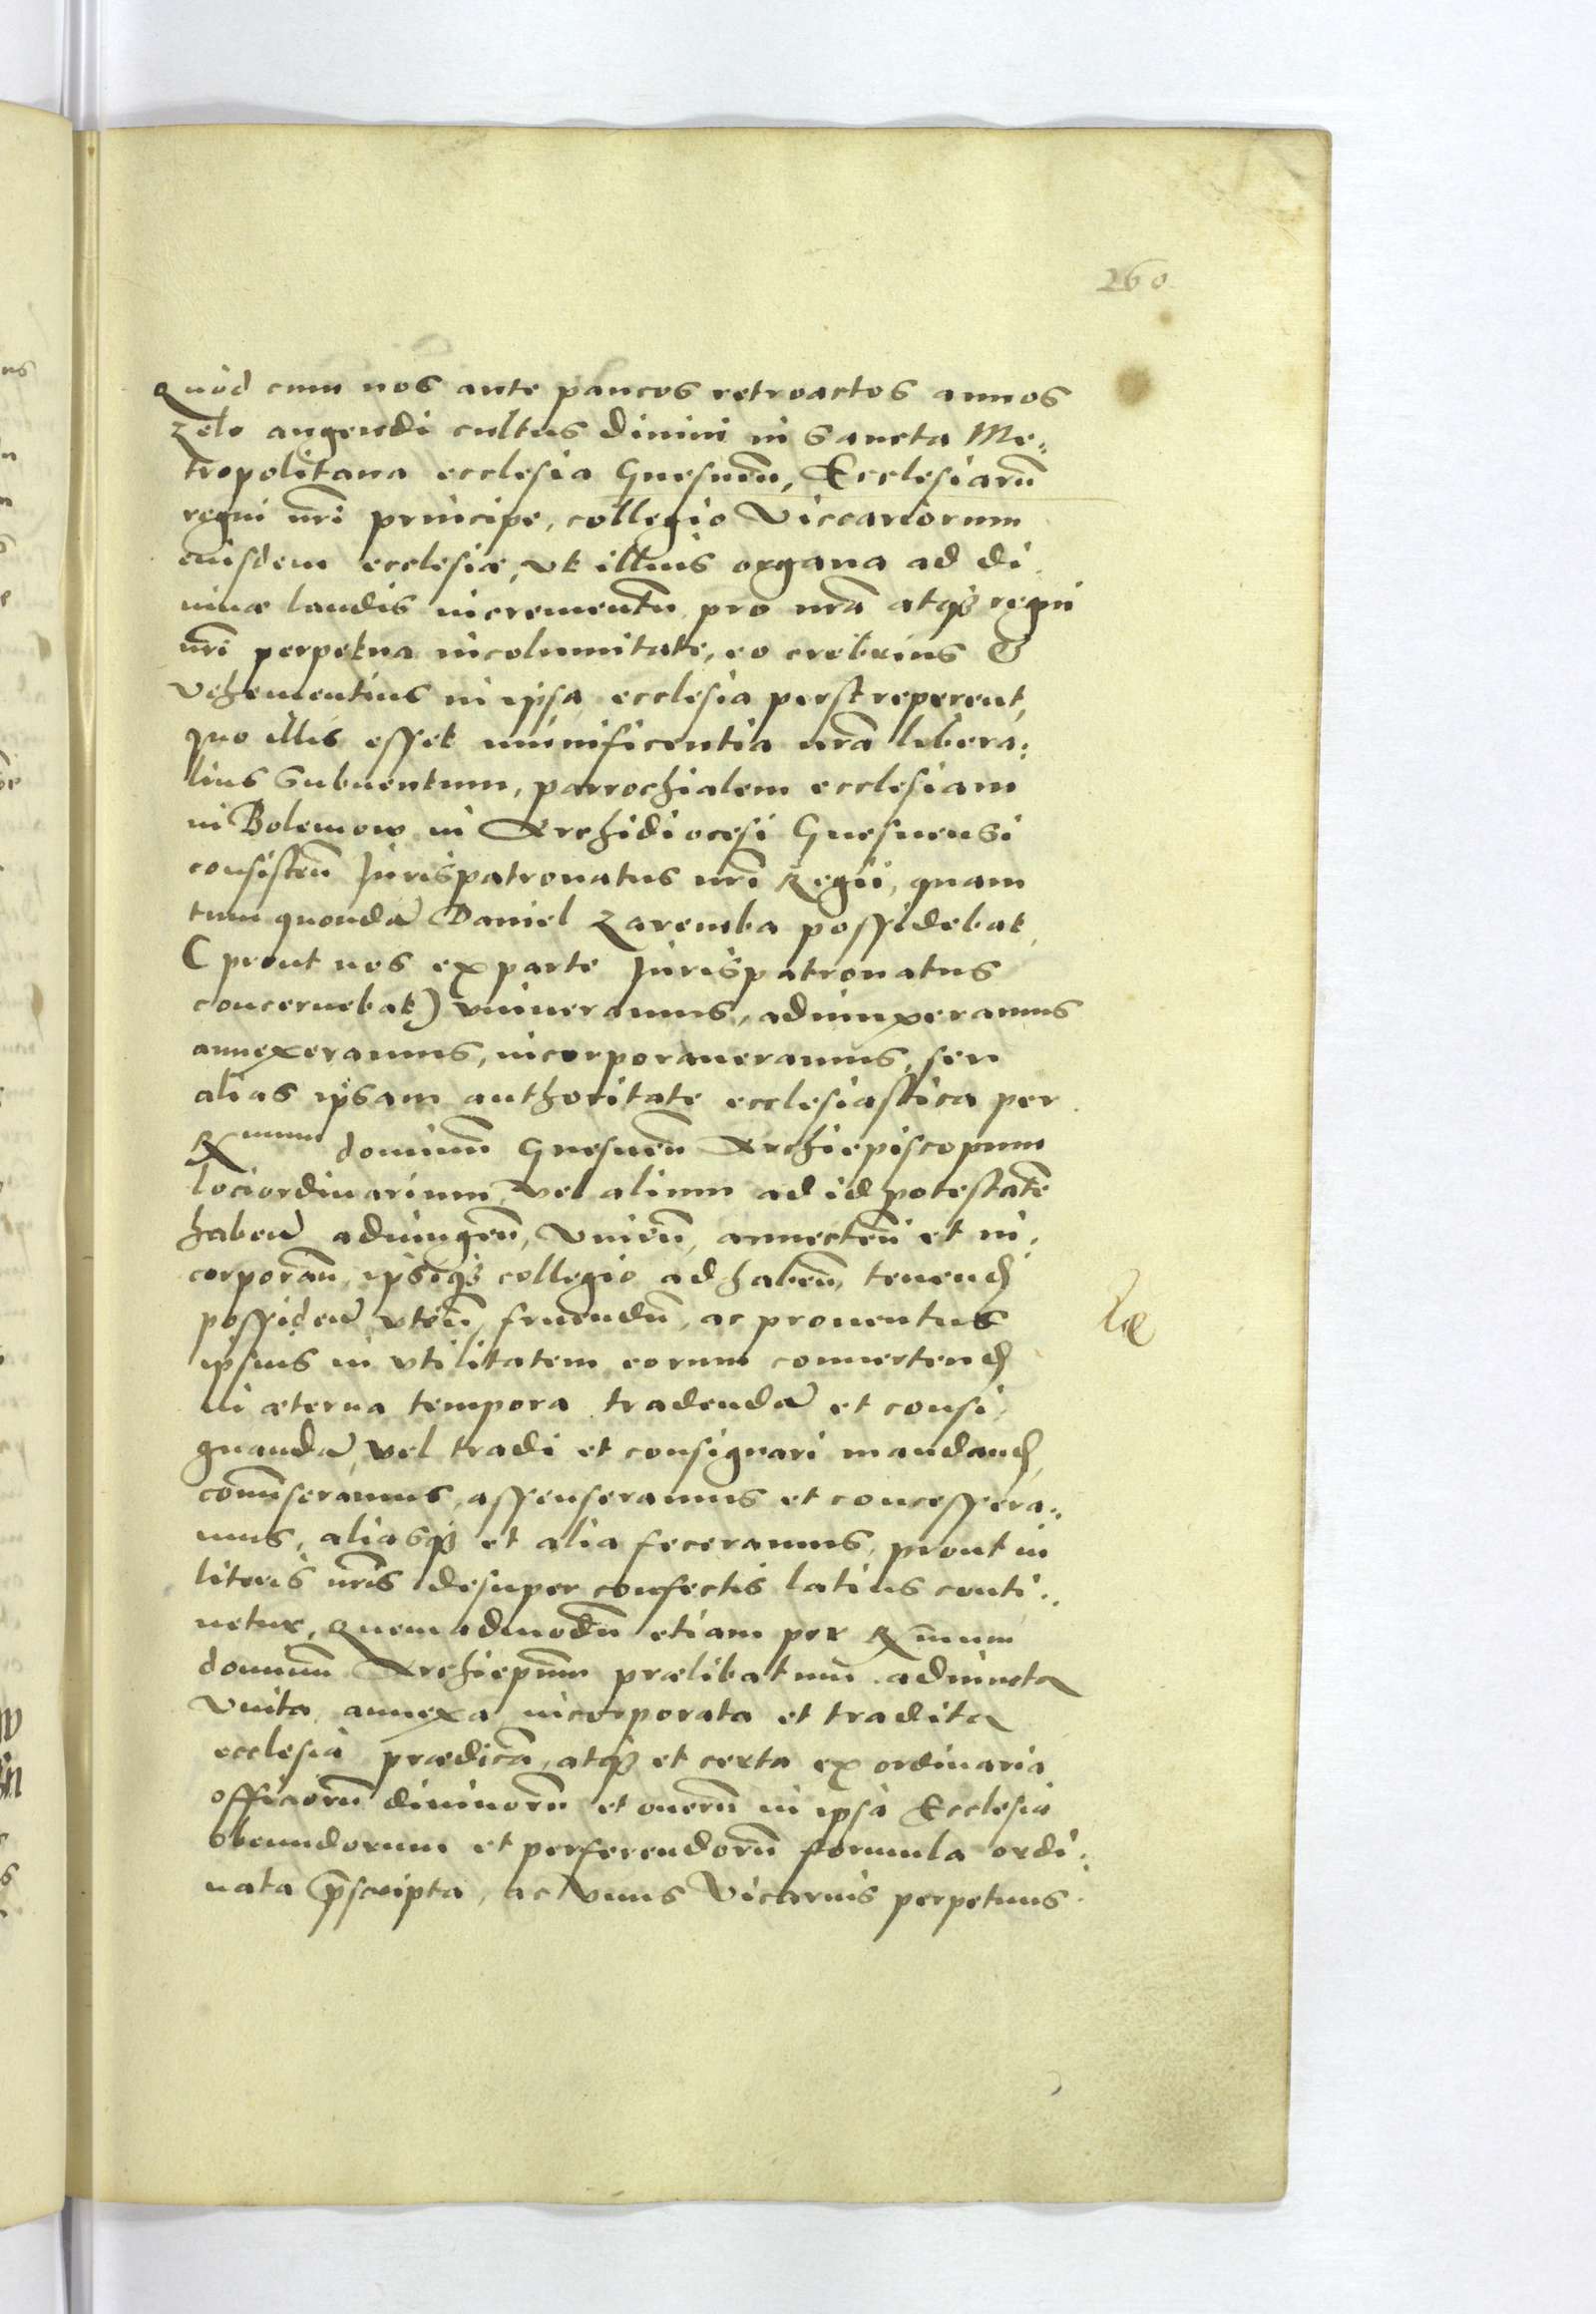 260
Quod cum nos ante paucos retroactos annos
zelo augendi cultus diuini in Sancta Me:
tropolitana ecclesia Gnesnen̄, Ecclesiarū
regni nr̄i principe, collegio Viccariorum
eiusdem ecclesiæ, vt illius organa ad di
uinæ laudis incrementū pro nr̄a atq3 regni
nr̄i perpetua incolumitate, eo crebrius &
vehementius in ipsa ecclesia perstreperent,
quo illis esset munificentia nr̄a libera:
lius Subuentum, parrochialem ecclesiam
in Bolemow in Archidiocesi Gnesnensi
consisten̄ Jurispatronatus nr̄i Regii, quam
tum quondā Daniel Zaremba possidebat,
(prout nos ex parte Jurispatronatus
concernebat) vniueramus, adiunxeramus
annexeramus, incorporaueramus, seu
alias ipsam authoritate ecclesiastica per
Rmum dominū Gnesnen̄ Archiepiscopum
loci ordinarium, vel alium ad id potestatē
haben̄ adiungen̄, Vnien̄, annecten̄ et in:
corporan̄, ipsiq3 collegio ad haben̄, tenend
possiden̄ vten̄, fruendū, ac prouentus
ipsius in vtilitatem eorum conuertend
in æterna tempora tradendā et consi:
gnandā, vel tradi et consignari mandand,
consenseramus, assenseramus et concessera:
mus, aliasq3 et alia feceramus, prout in
literis nr̄is desuper confectis latius conti:
netur, Quemadmodū etiam per Rmum
dominū Archiepūm prælibatum adiuncta
vnita annexa incorporata et tradita
ecclesia prædicā, atq3 et certa ex ordinaria
officiorū diuinorū et onerū in ipsa Ecclesia
obeundorum et perferendorū formula ordi:
nata p̄scripta, ac vnus Vicarius perpetuus